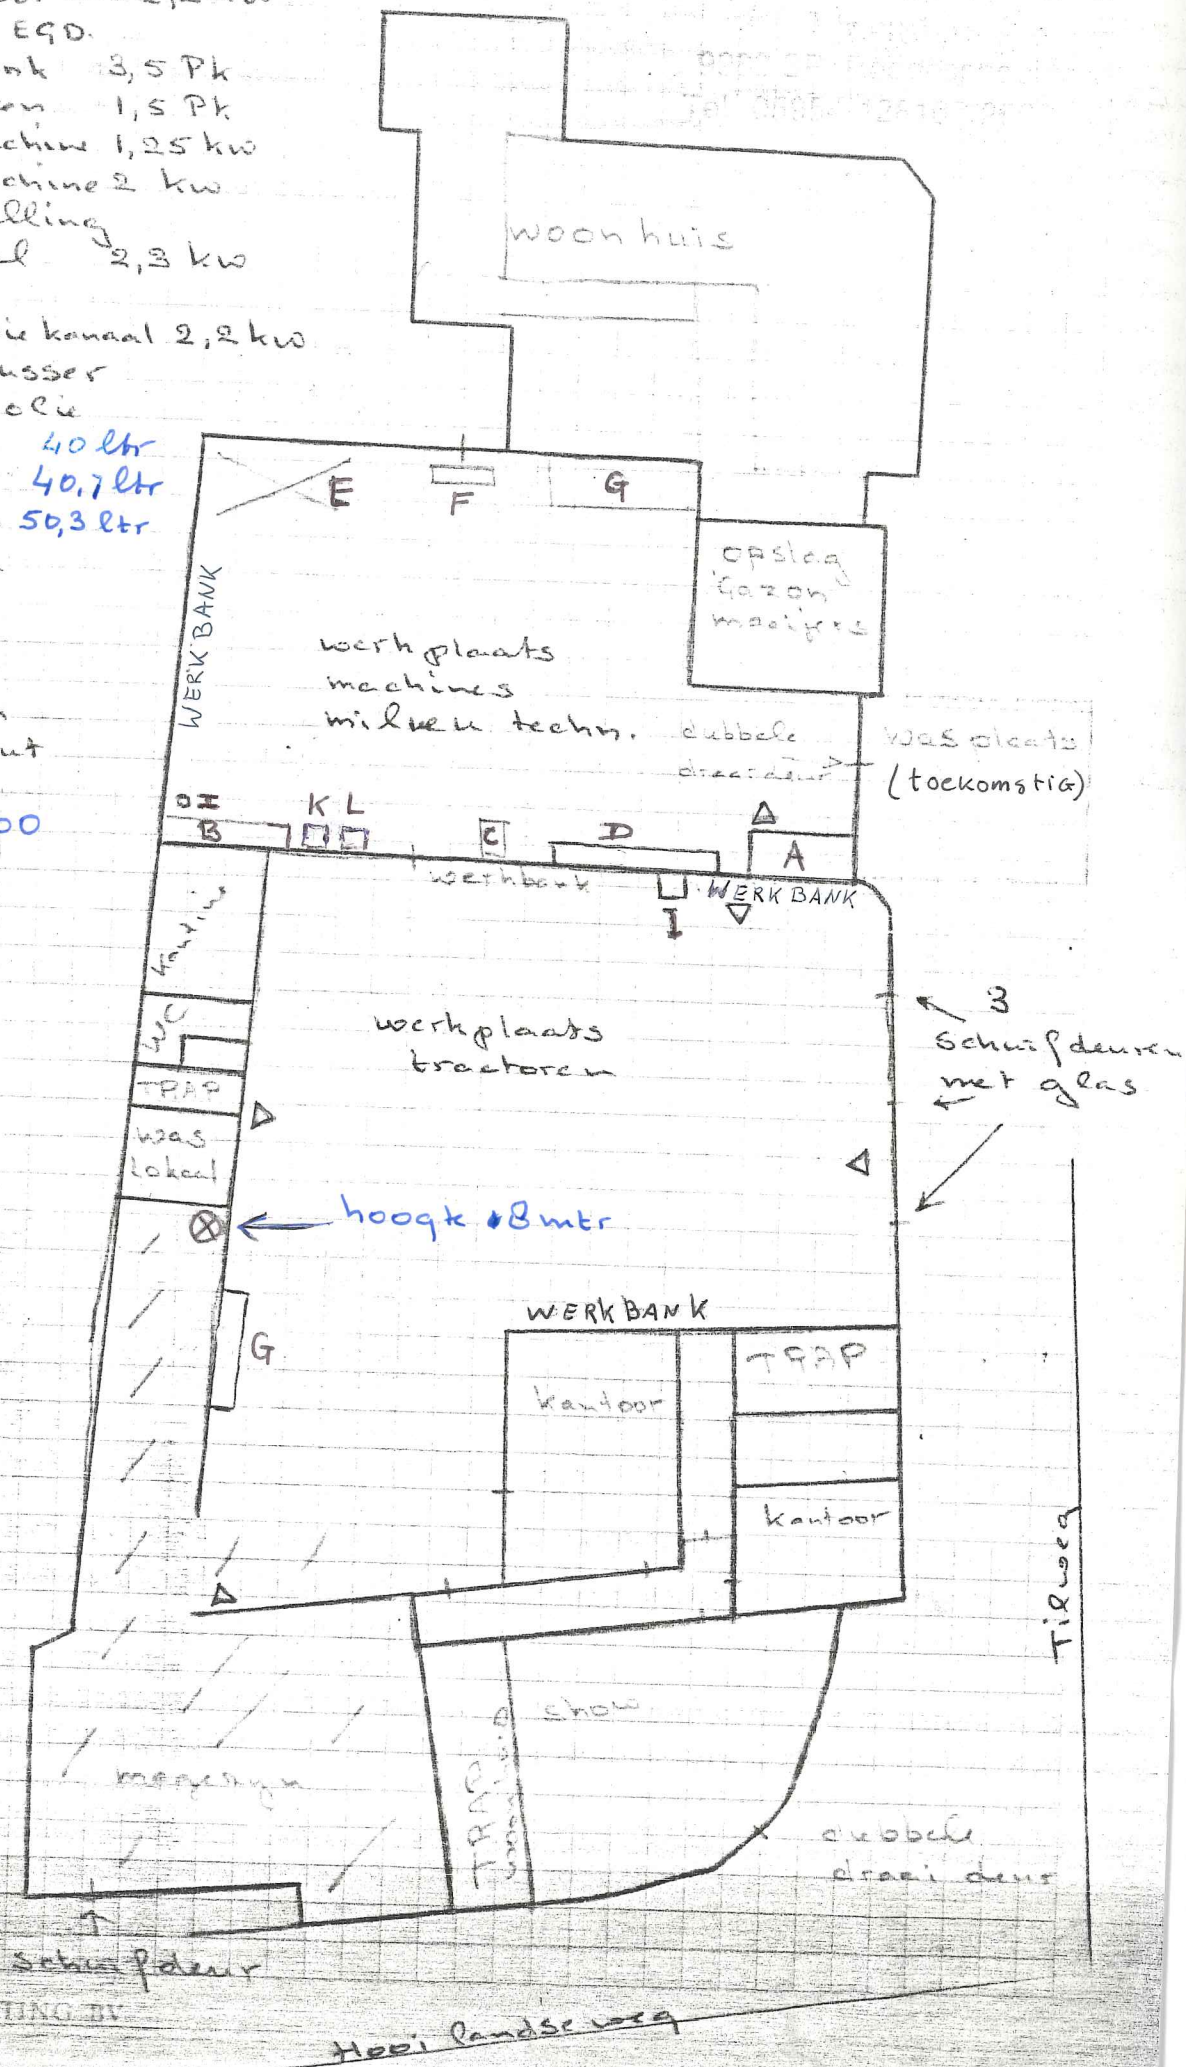 EGD.
nk 3,5 Pk
en 1,5 Pk
chine 1,25 kw
chine 2 kw
lling
l 2,3 kw
ie kanaal 2,2 kw
usser
olie
40 ltr
40,7 ltr
50,3 ltr
ut
00
woonhuis
E
F
G
opslag
Gazon
maaijers
WERKBANK
werkplaats
machines
milieu techn.
dubbele
draaideur
wasplaats
(toekomstig)
I
B
K L
C
D
A
werkbank
I
WERKBANK
kantine
WC
TRAP
was
lokaal
werkplaats
tractoren
3
Schuifdeuren
met glas
hoogte 8 mtr
G
WERKBANK
TRAP
kantoor
kantoor
Tilweg
show
TRAP
magazijn
dubbele
draai deur
schuifdeur
TING BV
Hooilandseweg